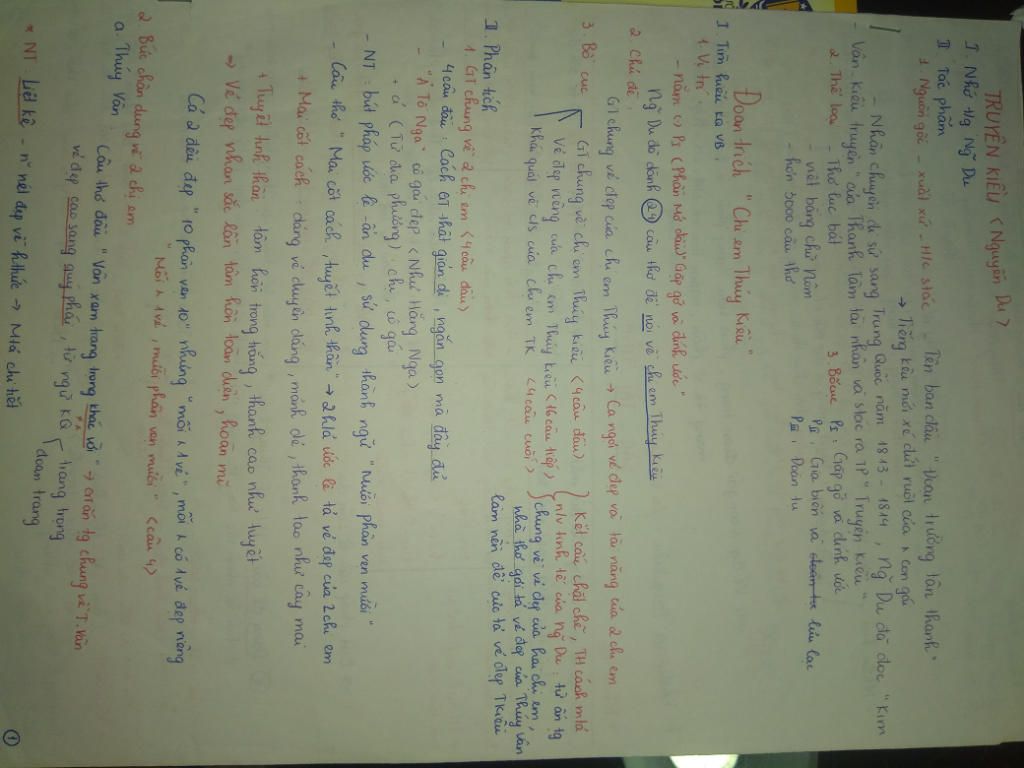 TRUYỆN KIỀU < Nguyễn Du >
I Nhớ tg Ng Du
II Tác phẩm
1 Nguồn gốc - xuất xứ - H/c stác - Tên ban đầu "Đoạn trường tân thanh"
→ Tiếng kêu mới xé đứt ruột của n con gái
- Nhân chuyến đi sứ sang Trung Quốc năm 1813 - 1814, Ng Du đã đọc "Kim
Vân Kiều truyện" của Thanh Tâm tài nhân và stác ra TP "Truyện Kiều".
2. Thể loại - Thơ lục bát
- viết bằng chữ Nôm
- hơn 3000 câu thơ
3 Bố cục PI: Gặp gỡ và đính ước
PII: Gia biến và lưu lạc
PIII: Đoàn tụ
Đoạn trích "Chị em Thúy Kiều"
I. Tìm hiểu vb.
1. Vị trí
- nằm PI (Phần mở đầu) "Gặp gỡ và đính ước"
2 Chủ đề
Ng Du đã dành 24 câu thơ để nói về chị em Thúy Kiều
GT chung vẻ đẹp của chị em Thúy Kiều → Ca ngợi vẻ đẹp và tài năng của 2 chị em
3. Bố cục GT chung về chị em Thúy Kiều <4 câu đầu>
Vẻ đẹp riêng của chị em Thúy Kiều <16 câu tiếp>
Khái quát về c/s của chị em TK <4 câu cuối>
Kết cấu chặt chẽ, TH cách mtả
n/v tinh tế của Ng Du: từ ấn tg
chung về vẻ đẹp của hai chị em,
nhà thơ gợi tả vẻ đẹp của Thúy Vân
làm nền để cực tả vẻ đẹp TKiều
II. Phân tích
1 GT chung về 2 chị em <4 câu đầu>
- 4 câu đầu: Cách GT thật giản dị, ngắn gọn mà đầy đủ
- "Ả Tố Nga" cô gái đẹp <Như Hằng Nga>
+ ả (Từ địa phương): chị, cô gái
- NT: bút pháp ước lệ - ẩn dụ, sử dụng thành ngữ "Mười phân vẹn mười"
- Câu thơ "Mai cốt cách, tuyết tinh thần" → 2 h/á ước lệ tả vẻ đẹp của 2 chị em
+ Mai cốt cách: dáng vẻ duyên dáng, mảnh dẻ, thanh tao như cây mai
+ Tuyết tinh thần: tâm hồn trong trắng, thanh cao như tuyết
⇒ Vẻ đẹp nhan sắc lẫn tâm hồn toàn diện, hoàn mĩ
Cả 2 đều đẹp "10 phân vẹn 10" nhưng "mỗi n 1 vẻ", mỗi n có 1 vẻ đẹp riêng
"Mỗi n 1 vẻ, mười phân vẹn mười" <câu 4>
2 Bức chân dung về 2 chị em
a. Thúy Vân:
Câu thơ đầu "Vân xem trang trọng khác vời" → GT ấn tg chung về T.Vân
vẻ đẹp cao sang quý phái, từ ngữ KQ trang trọng
đoan trang
* NT Liệt kê - n~ nét đẹp về h.thức → Mtả chi tiết
1